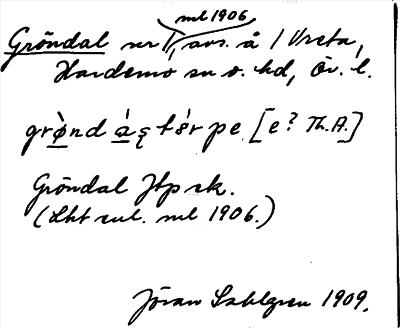 ml 1906
Gröndal nr 1, avs. å 1 Vreta,
Hardemo sn o. hd, Ör. l.
grò̱nd a̱ętó̱rpe [e? Th.A.]
Gröndal Jtp sk.
(Lht enl. ml 1906.)
Jöran Sahlgren 1909.